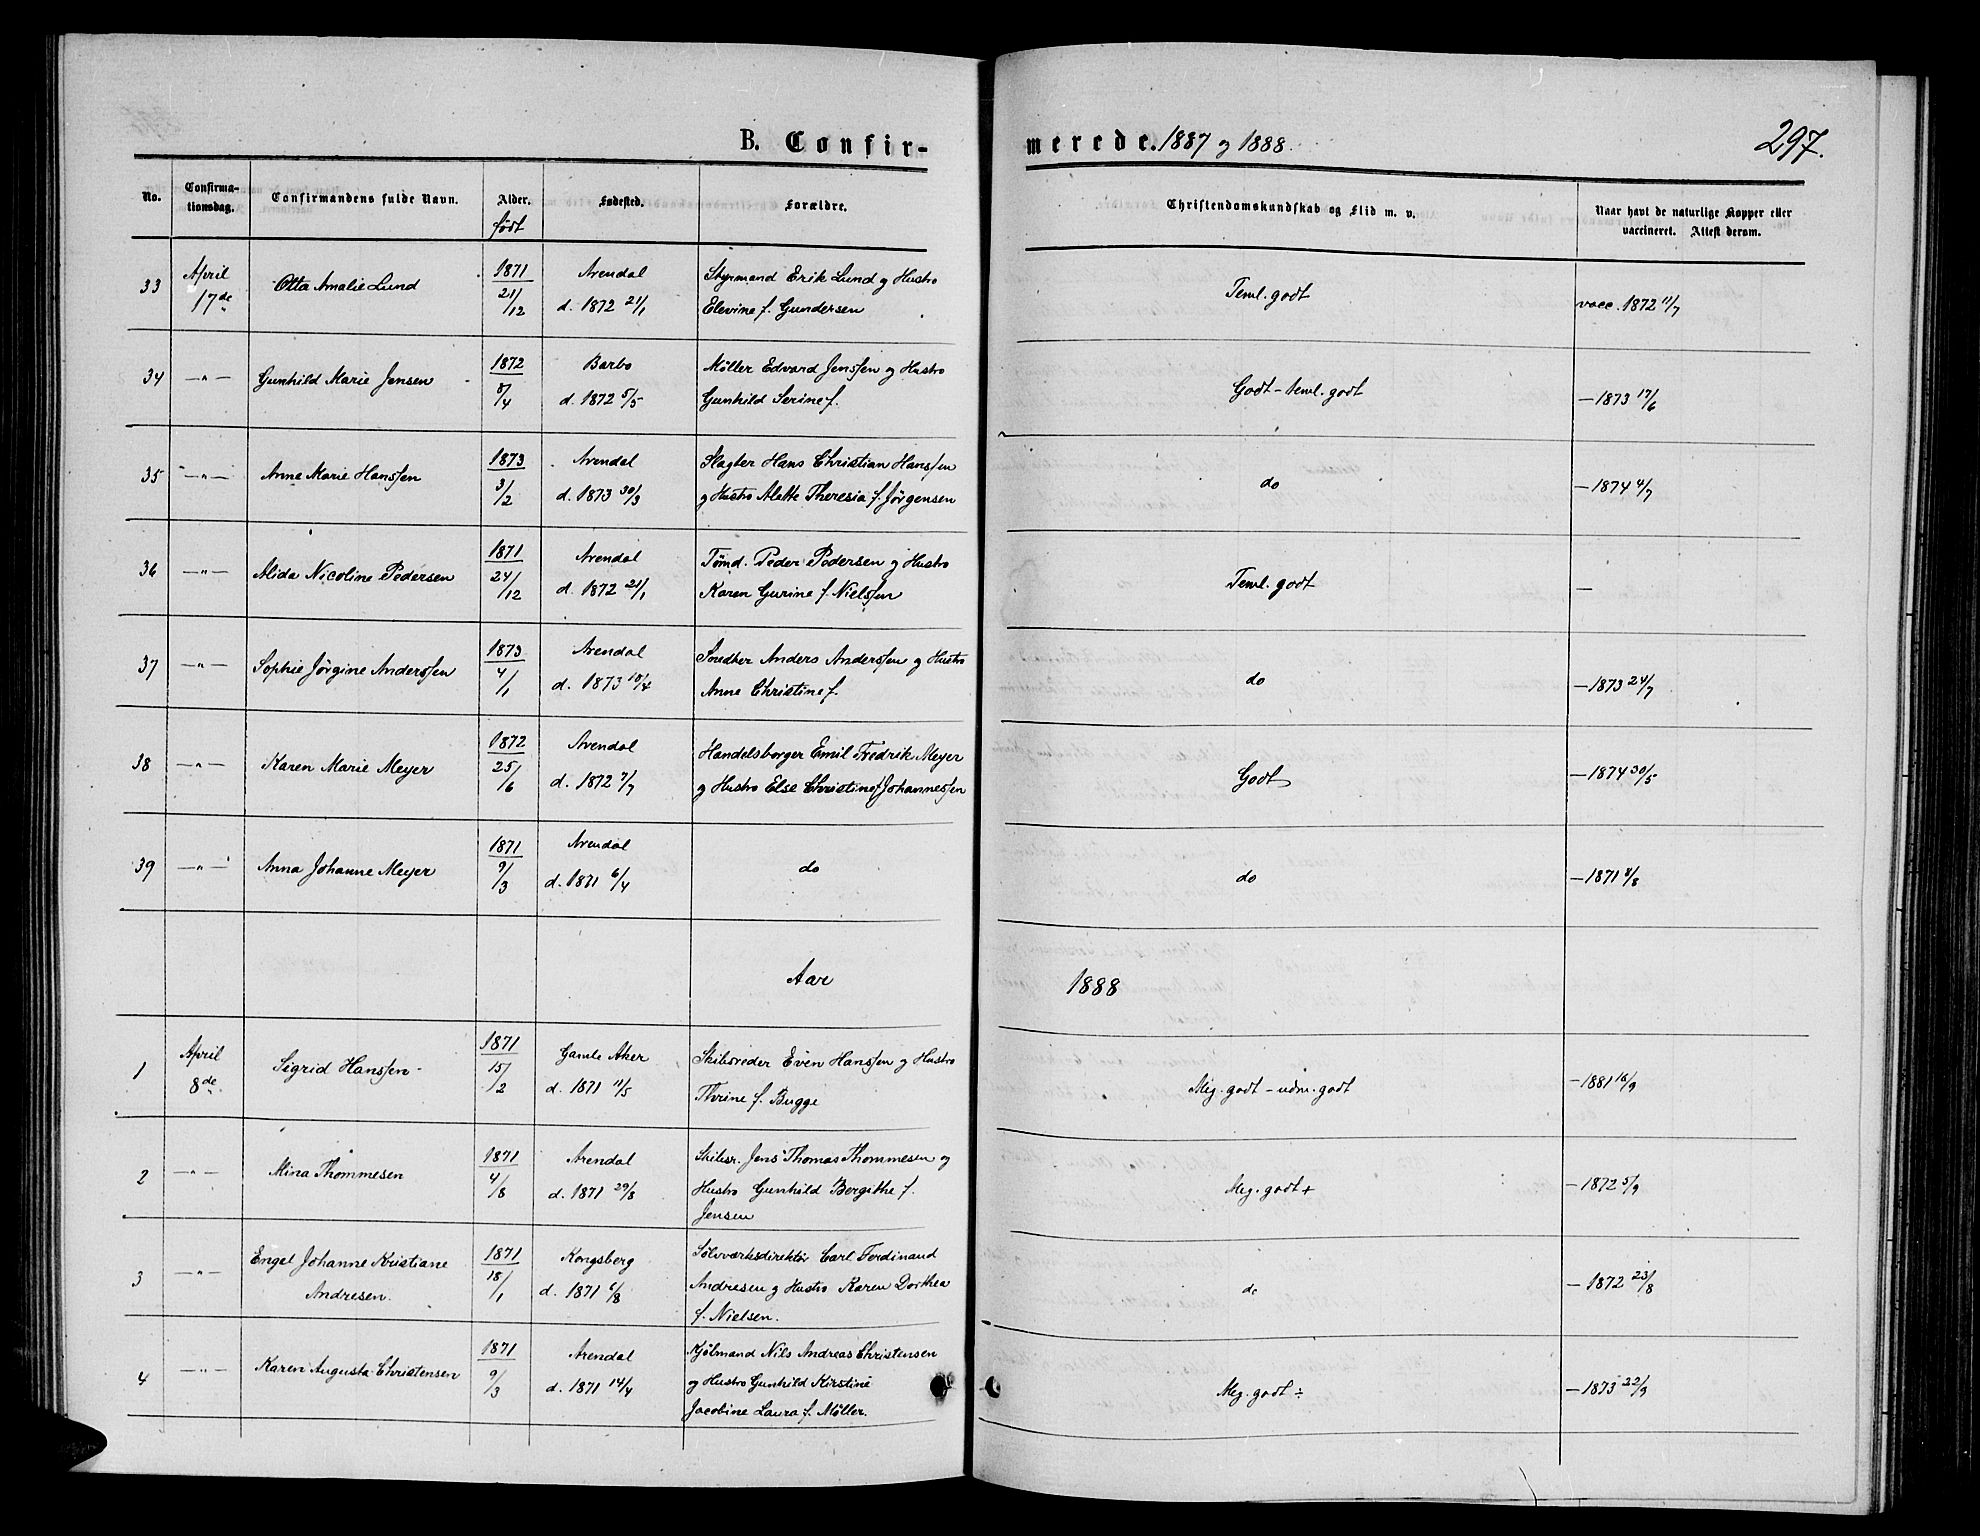 B. Confir-
merede. 1887 og 1888.
297.
No.
Confirma-
tionsdag.
Confirmandens fulde Navn.
Alder.
født
Fødested.
Forældre.
Christendomskundskab og Flid m. v.
Naar havt de naturlige Kopper eller
vaccineret. Attest derom.
33 April 17de Otta Amalie Lund 1871 21/12 Arendal d. 1872 21/1
Styrmand Erik Lund og Hustro
Elevine f. Gundersen
Teml. godt
vacc. 1872 11/7
34 —"— Gunhild Marie Jensen 1872 8/4 Barbo d. 1872 5/5
Møller Edvard Jenssen og Hustro
Gunhild Serine f.
Godt - teml. godt
— 1873 17/6
35 —"— Anne Marie Hanssen 1873 3/2 Arendal d. 1873 30/3
Slagter Hans Christian Hanssen
og Hustro Alette Theresia f. Jørgensen
do
— 1874 4/7
36 —"— Alida Nicoline Pedersen 1871 24/12 Arendal d. 1872 21/1
Tømd. Peder Pedersen og Hustro
Karen Gurine f. Nielssen
Teml. godt
—
37 —"— Sophie Jørgine Anderssen 1873 4/1 Arendal d. 1873 18/4
Snedker Anders Anderssen og Hustro
Anne Christine f.
do
— 1873 24/7
38 —"— Karen Marie Meyer 1872 25/6 Arendal d. 1872 7/7
Handelsborger Emil Fredrik Meyer
og Hustro Else Christine f Johannessen
Godt
— 1874 30/5
39 —"— Anna Johanne Meyer 1871 9/3 Arendal d. 1871 6/4
do
do
— 1871 8/8
Aar 1888
1 April 8de Sigrid Hanssen 1871 15/2 Gamle Aker d. 1871 11/5
Skibsreder Even Hanssen og Hustro
Thrine f. Bugge
Meg. godt - udm. godt
— 1881 16/9
2 —"— Mina Thommesen 1871 4/8 Arendal d. 1871 29/8
Skibsr. Jens Thomas Thommesen og
Hustro Gunhild Bergithe f.
Jensen
Meg. godt +
— 1872 5/9
3 —"— Engel Johanne Kristiane
Andresen. 1871 18/1 Kongsberg d. 1871 6/8
Sølvværksdirektør Carl Ferdinand
Andresen og Hustro Karen Dorthea
f. Nielsen.
do
— 1872 23/8
4 —"— Karen Augusta Christensen 1871 9/3 Arendal d. 1871 14/4
Kjølmand Nils Andreas Christensen
og Hustro Gunhild Kirstine
Jacobine Laura f. Møller.
Meg. godt ÷
— 1873 22/9